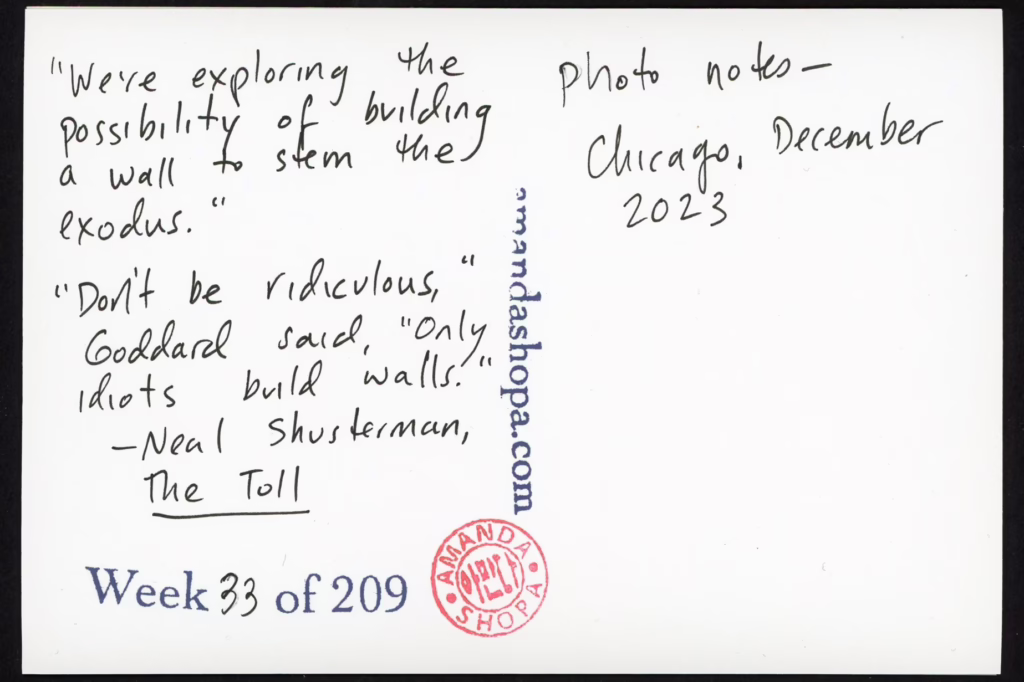 "We're exploring the
possibility of building
a wall to stem the
exodus."
"Don't be ridiculous,"
Goddard said, "Only
idiots build walls."
—Neal Shusterman,
The Toll
Week 33 of 209
photo notes—
Chicago, December
2023
amandashopa.com
AMANDA
아만다
SHOPA